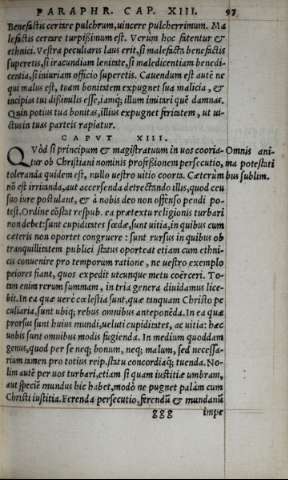 PARAPHR. CAP. XIII. 97
Benefactis certare pulchrum, uincere pulcherrimum. Ma
lefactis certare turpißimum est. Verum hoc sentitur &
ethnici. Vestra peculiaris laus erit, si malefacta benefactis
superetis, si iracundiam lenitate, si maledicentiam benedi-
centia, si iniuriam officio superetis. Cauendum est aūt ne
qui malus est, tuam bonitatem expugnet sua malicia, &
incipias tui dißimilis esse, iamq; illum imitari quē damnas.
Quin potius tua bonitas, illius expugnet feritatem, ut ui-
ctus in tuas parteis rapiatur.
CAPVT XIII.
QVòd si principum & magistratuum in uos cooria-
tur ob Christiani nominis profeßionem persecutio,
toleranda quidem est, nullo uestro uitio cooris. Cæterùm
nō est irritanda, aut accersenda detrectando illis, quod ceu
suo iure postulant, & à nobis deo non offenso pendi po-
test. Ordine cōstat respub. ea prætextu religionis turbari
non debet: sunt cupiditates fœdæ, sunt uitia, in quibus cum
cæteris non oportet congruere: sunt rursus in quibus ob
tranquillitatem publici status oporteat etiam cum ethni-
cis conuenire pro temporum ratione, ne uestro exemplo
peiores fiant, quos expedit utcunque metu coërceri. To-
tum enim rerum summam, in tria genera diuidamus lice-
bit. In ea quæ uerè cœlestia sunt, quæ tanquam Christo pe
culiaria, sunt ubiq; rebus omnibus anteponēda. In ea quæ
prorsus sunt huius mundi, ueluti cupiditates, ac uitia: hæc
uobis sunt omnibus modis fugienda. In medium quoddam
genus, quod per se neq; bonum, neq; malum, sed necessa-
rium tamen pro totius reip. statu concordiaq; tuenda. No-
lim autē per uos turbari, etiam si quam iustitiæ umbram,
aut speciē mundus hic habet, modò ne pugnet palàm cum
Christi iustitia. Ferenda persecutio, ferendū & mundanū
ggg impe
Omnis ani-
ma potestati
bus sublim.